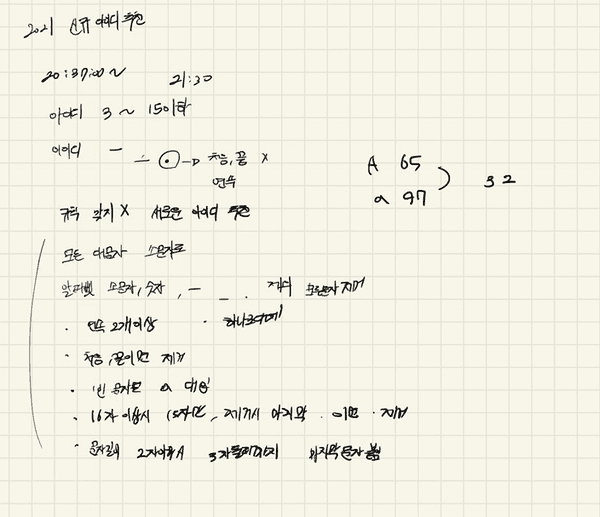 2021 신규 아이디 추천
20:37:00 ~ 21:30
아이디 3 ~ 15이하
아이디 - _ . → 처음, 끝 x
연속
A 65
a 97
32
규칙 맞지 X 새로운 아이디 추천
모든 대문자 소문자로
알파벳 소문자, 숫자, - _ . 제외 모든문자 제거
· 연속 2개이상 · 하나로대체
· 처음, 끝이면 제거
· 빈 문자면 a 대입
· 16자 이상시 15자만, 제거시 마지막 . 이면 · 제거
· 문자길이 2자이하 3자 마지막 문자 붙